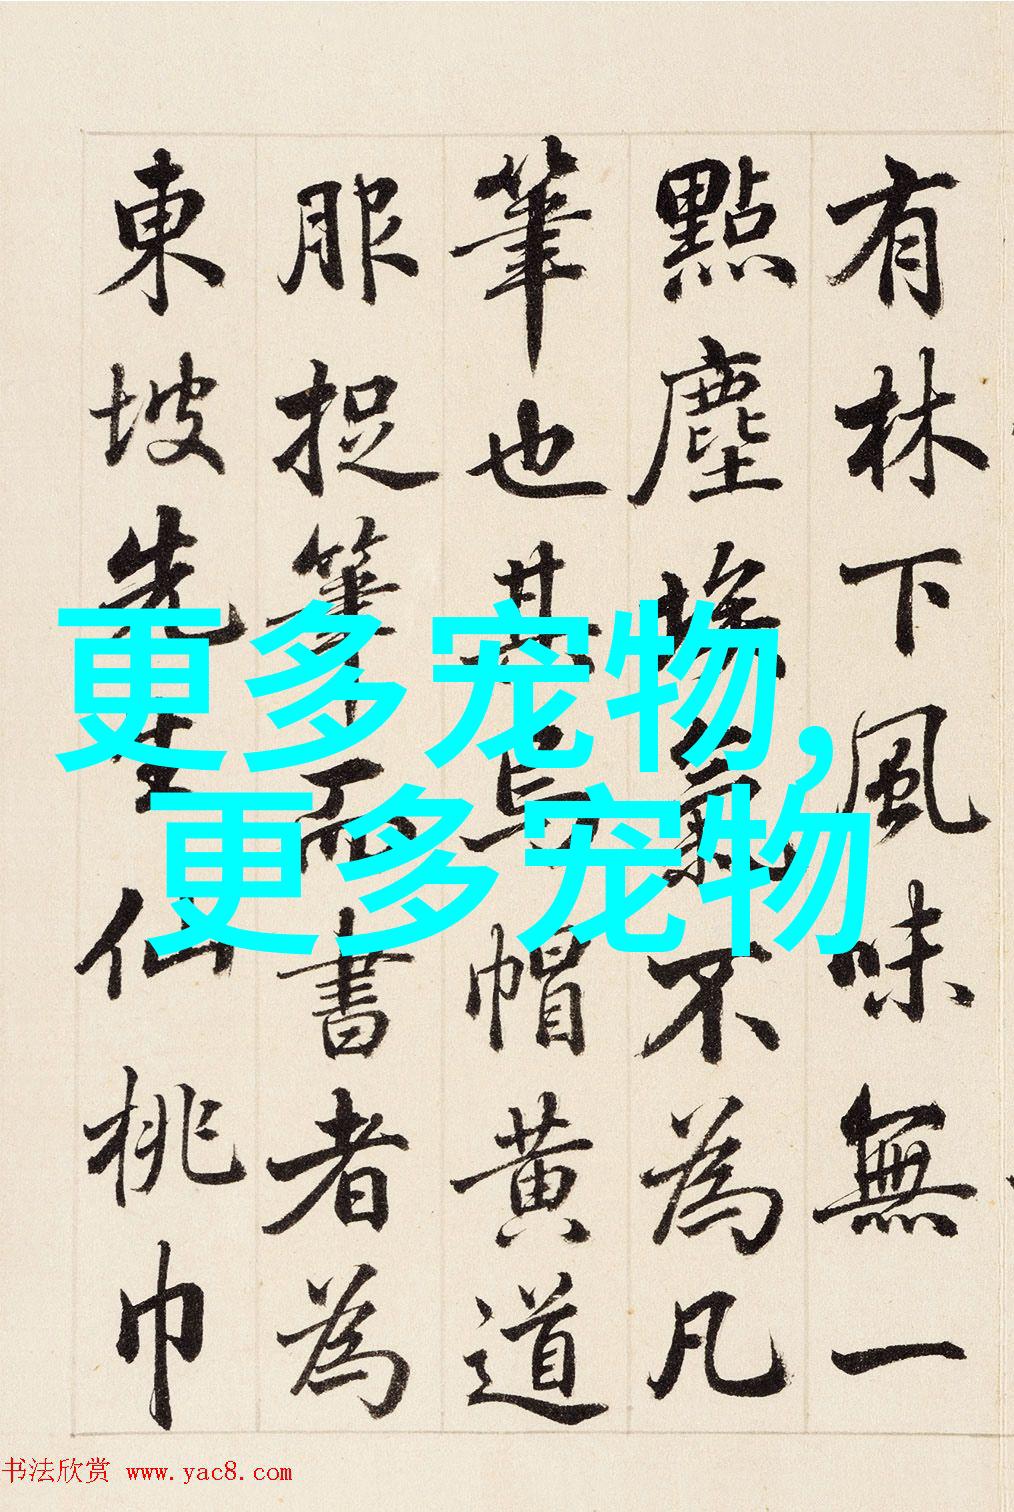 有林下風味無一
點塵埃氣不為凡
筆也其烏帽黃道
服捉筆而書者為
東坡先生仙桃巾
更多宠物,
更多宠物
书法欣赏 www.yac8.com